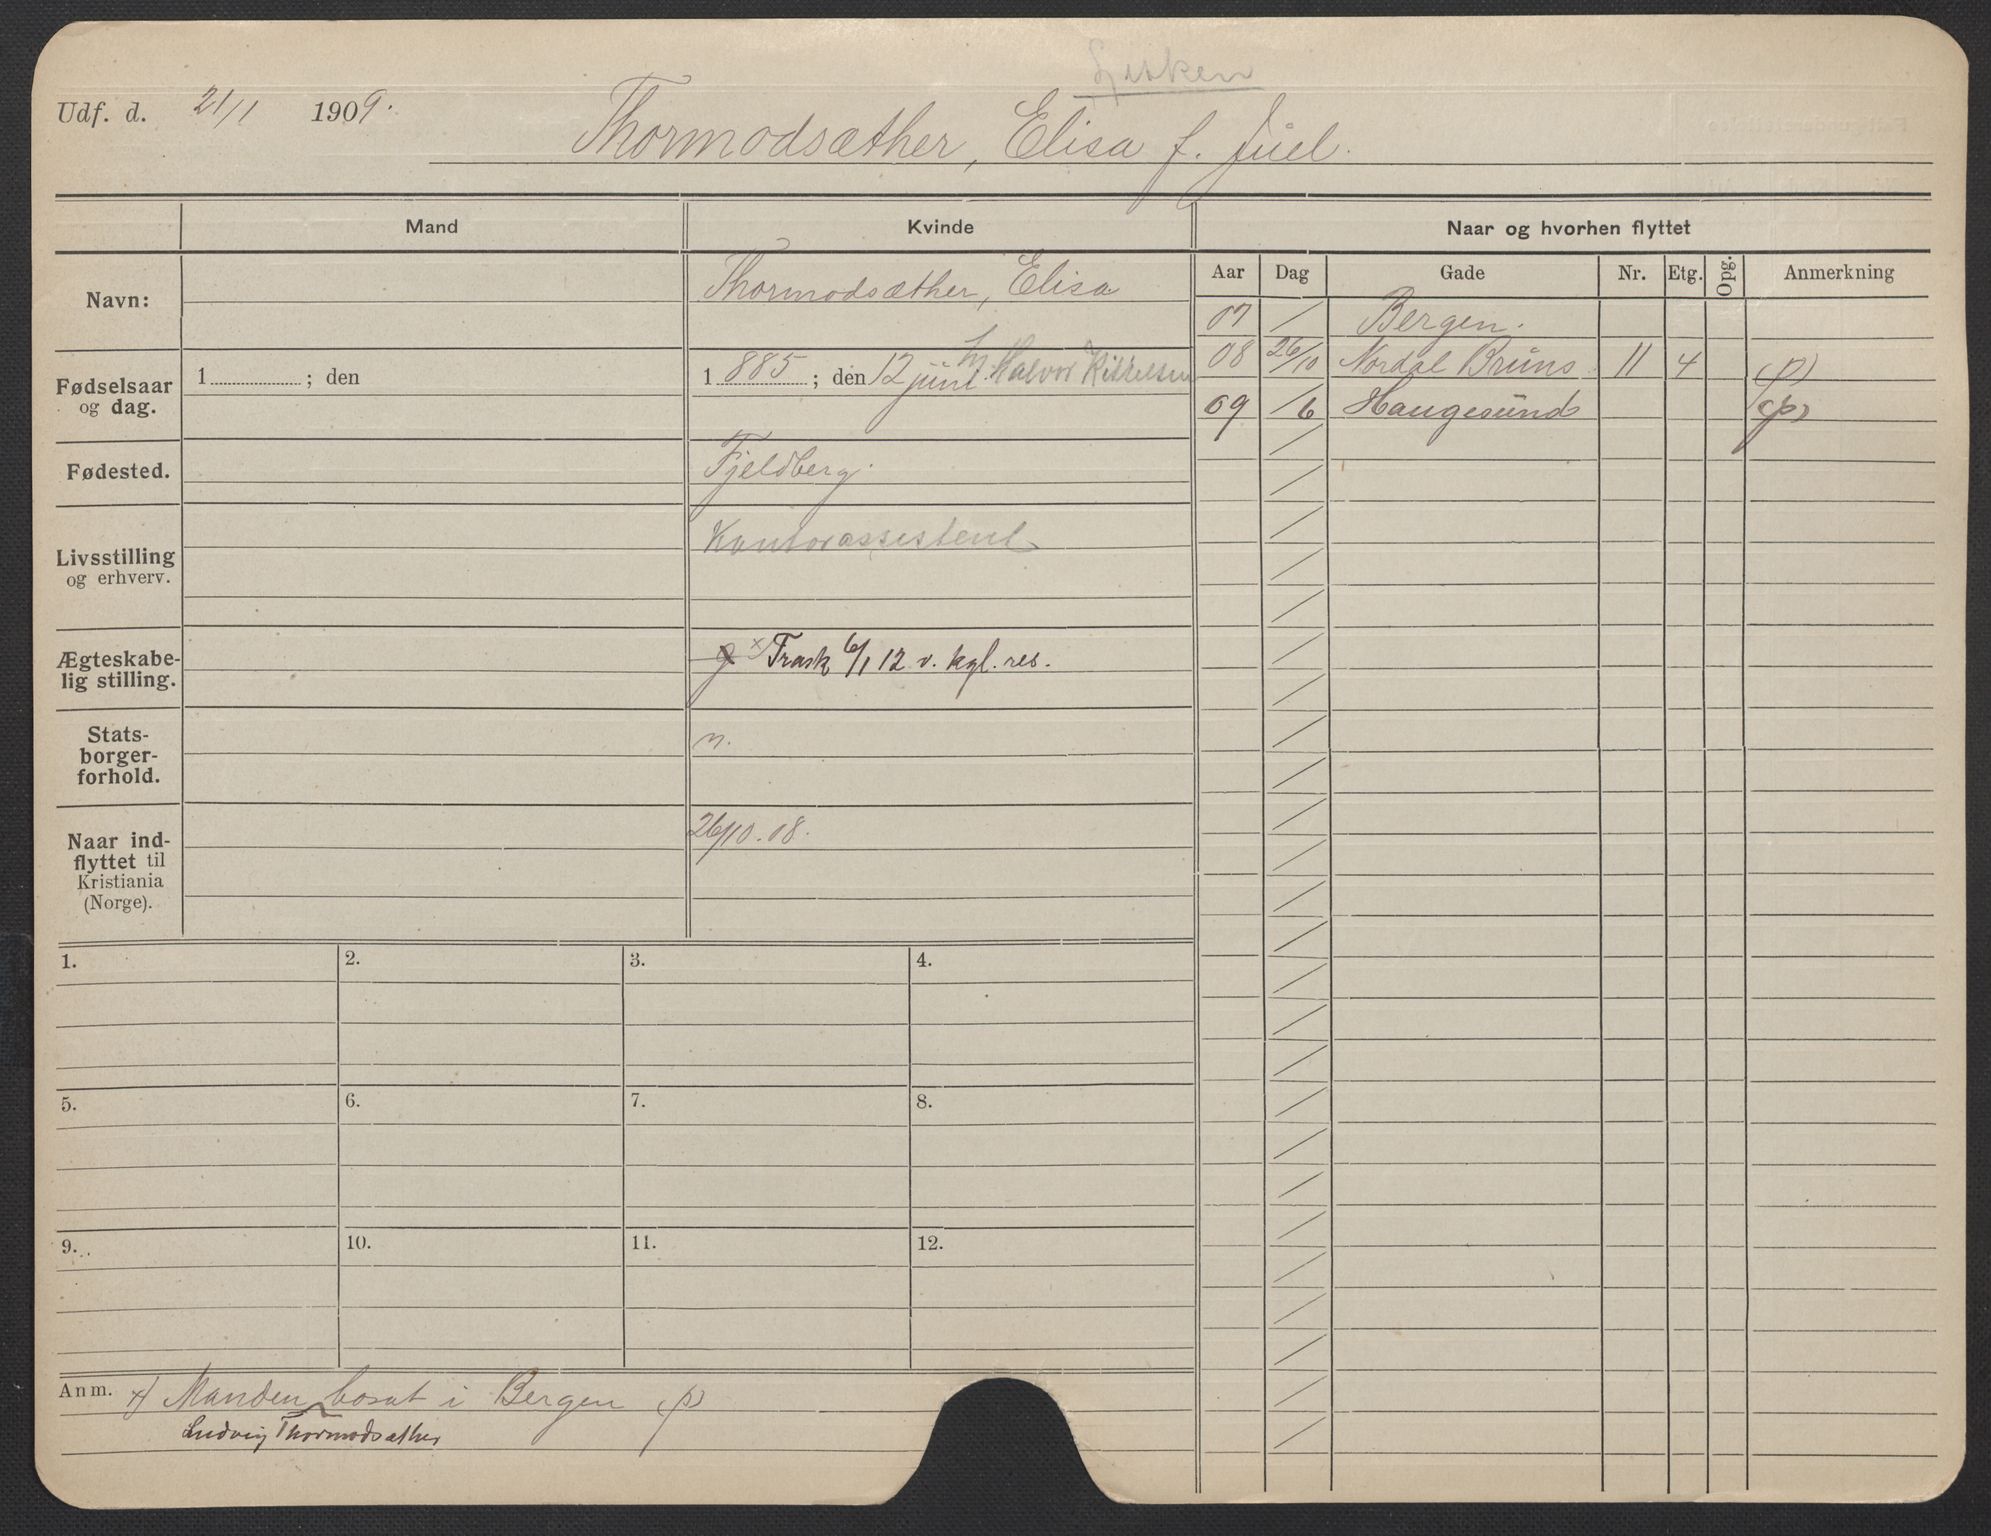 Udf. d. 21/1 1909.
Thormodsæther, Elisa f. Juel.
Mand
Kvinde
Naar og hvorhen flyttet
Aar Dag Gade Nr. Etg. Opg. Anmerkning
Navn:
Thormodsæther, Elisa
Fødselsaar og dag.
1 ; den
1 885 ; den 12 juni Halvor Kittelsen
Fødested.
Fjeldberg.
Livsstilling og erhverv.
Kontorassistent
Ægteskabelig stilling.
g x) Frask 6/1 12 v. kgl. res.
Statsborgerforhold.
n.
Naar indflyttet til Kristiania (Norge).
26/10.08.
07 / Bergen.
08 26/10 Nordal Bruns 11 4 (p)
09 /6 Haugesund (p)
1. 2. 3. 4.
5. 6. 7. 8.
9. 10. 11. 12.
Anm. x) Manden bosat i Bergen (p)
Ludvig Thormodsæther